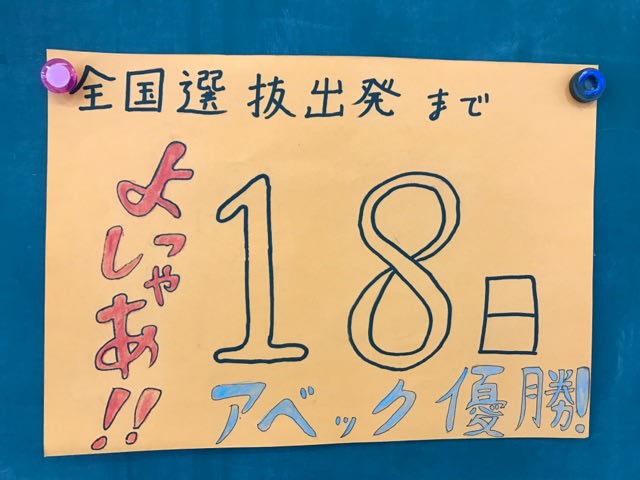 全国選抜出発まで
18日
よっしゃあ!!
アベック優勝!